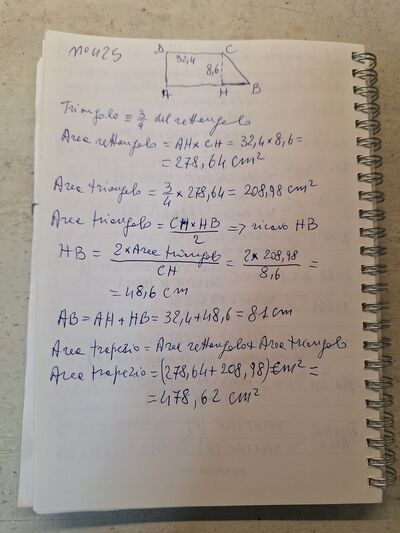 N° 425
D 32,4 C
8,6
A H B
Triangolo = 3/4 del rettangolo
Area rettangolo = AH x CH = 32,4 x 8,6 =
= 278,64 cm²
Area triangolo = 3/4 x 278,64 = 208,98 cm²
Area triangolo = CH x HB / 2 => ricavo HB
HB = 2 x Area triangolo / CH = 2 x 208,98 / 8,6 =
= 48,6 cm
AB = AH + HB = 32,4 + 48,6 = 81 cm
Area trapezio = Area rettangolo + Area triangolo
Area trapezio = (278,64 + 208,98) cm² =
= 478,62 cm²